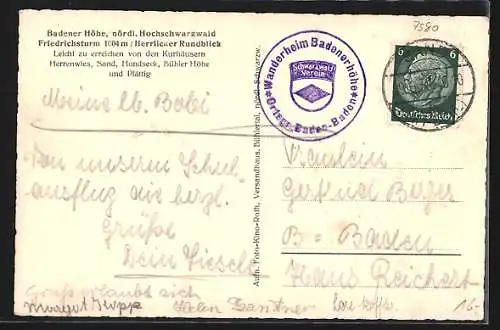 Badener Höhe, nördl. Hochschwarzwald
Friedrichsturm 1004 m / Herrlicher Rundblick
Leicht zu erreichen von den Kurhäusern
Herrenwies, Sand, Hundseck, Bühler Höhe
und Plättig
Meine lb. Babi
Von unserem Schul-
ausflug die herzl.
Grüße
Dein Liesele
Gruß erlaubt sich
Margot
Wanderheim Badenerhöhe
Schwarzwald
Verein
Ortsgr. Baden-Baden
Aufn. Foto-Kino-Rath, Versandhaus, Bühlertal, nördl. Schwarzw.
7580
6
6
Deutsches Reich
Fräulein
Gertrud
B.-Baden
Haus Reichert
16.-